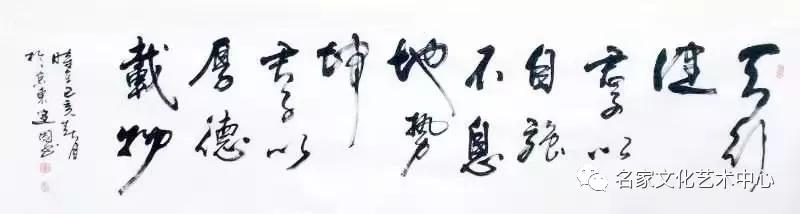 天行
健
君子以
自强
不息
地势
坤
君子以
厚德
載物
時在己亥秋月
於京東建国書
名家文化艺术中心